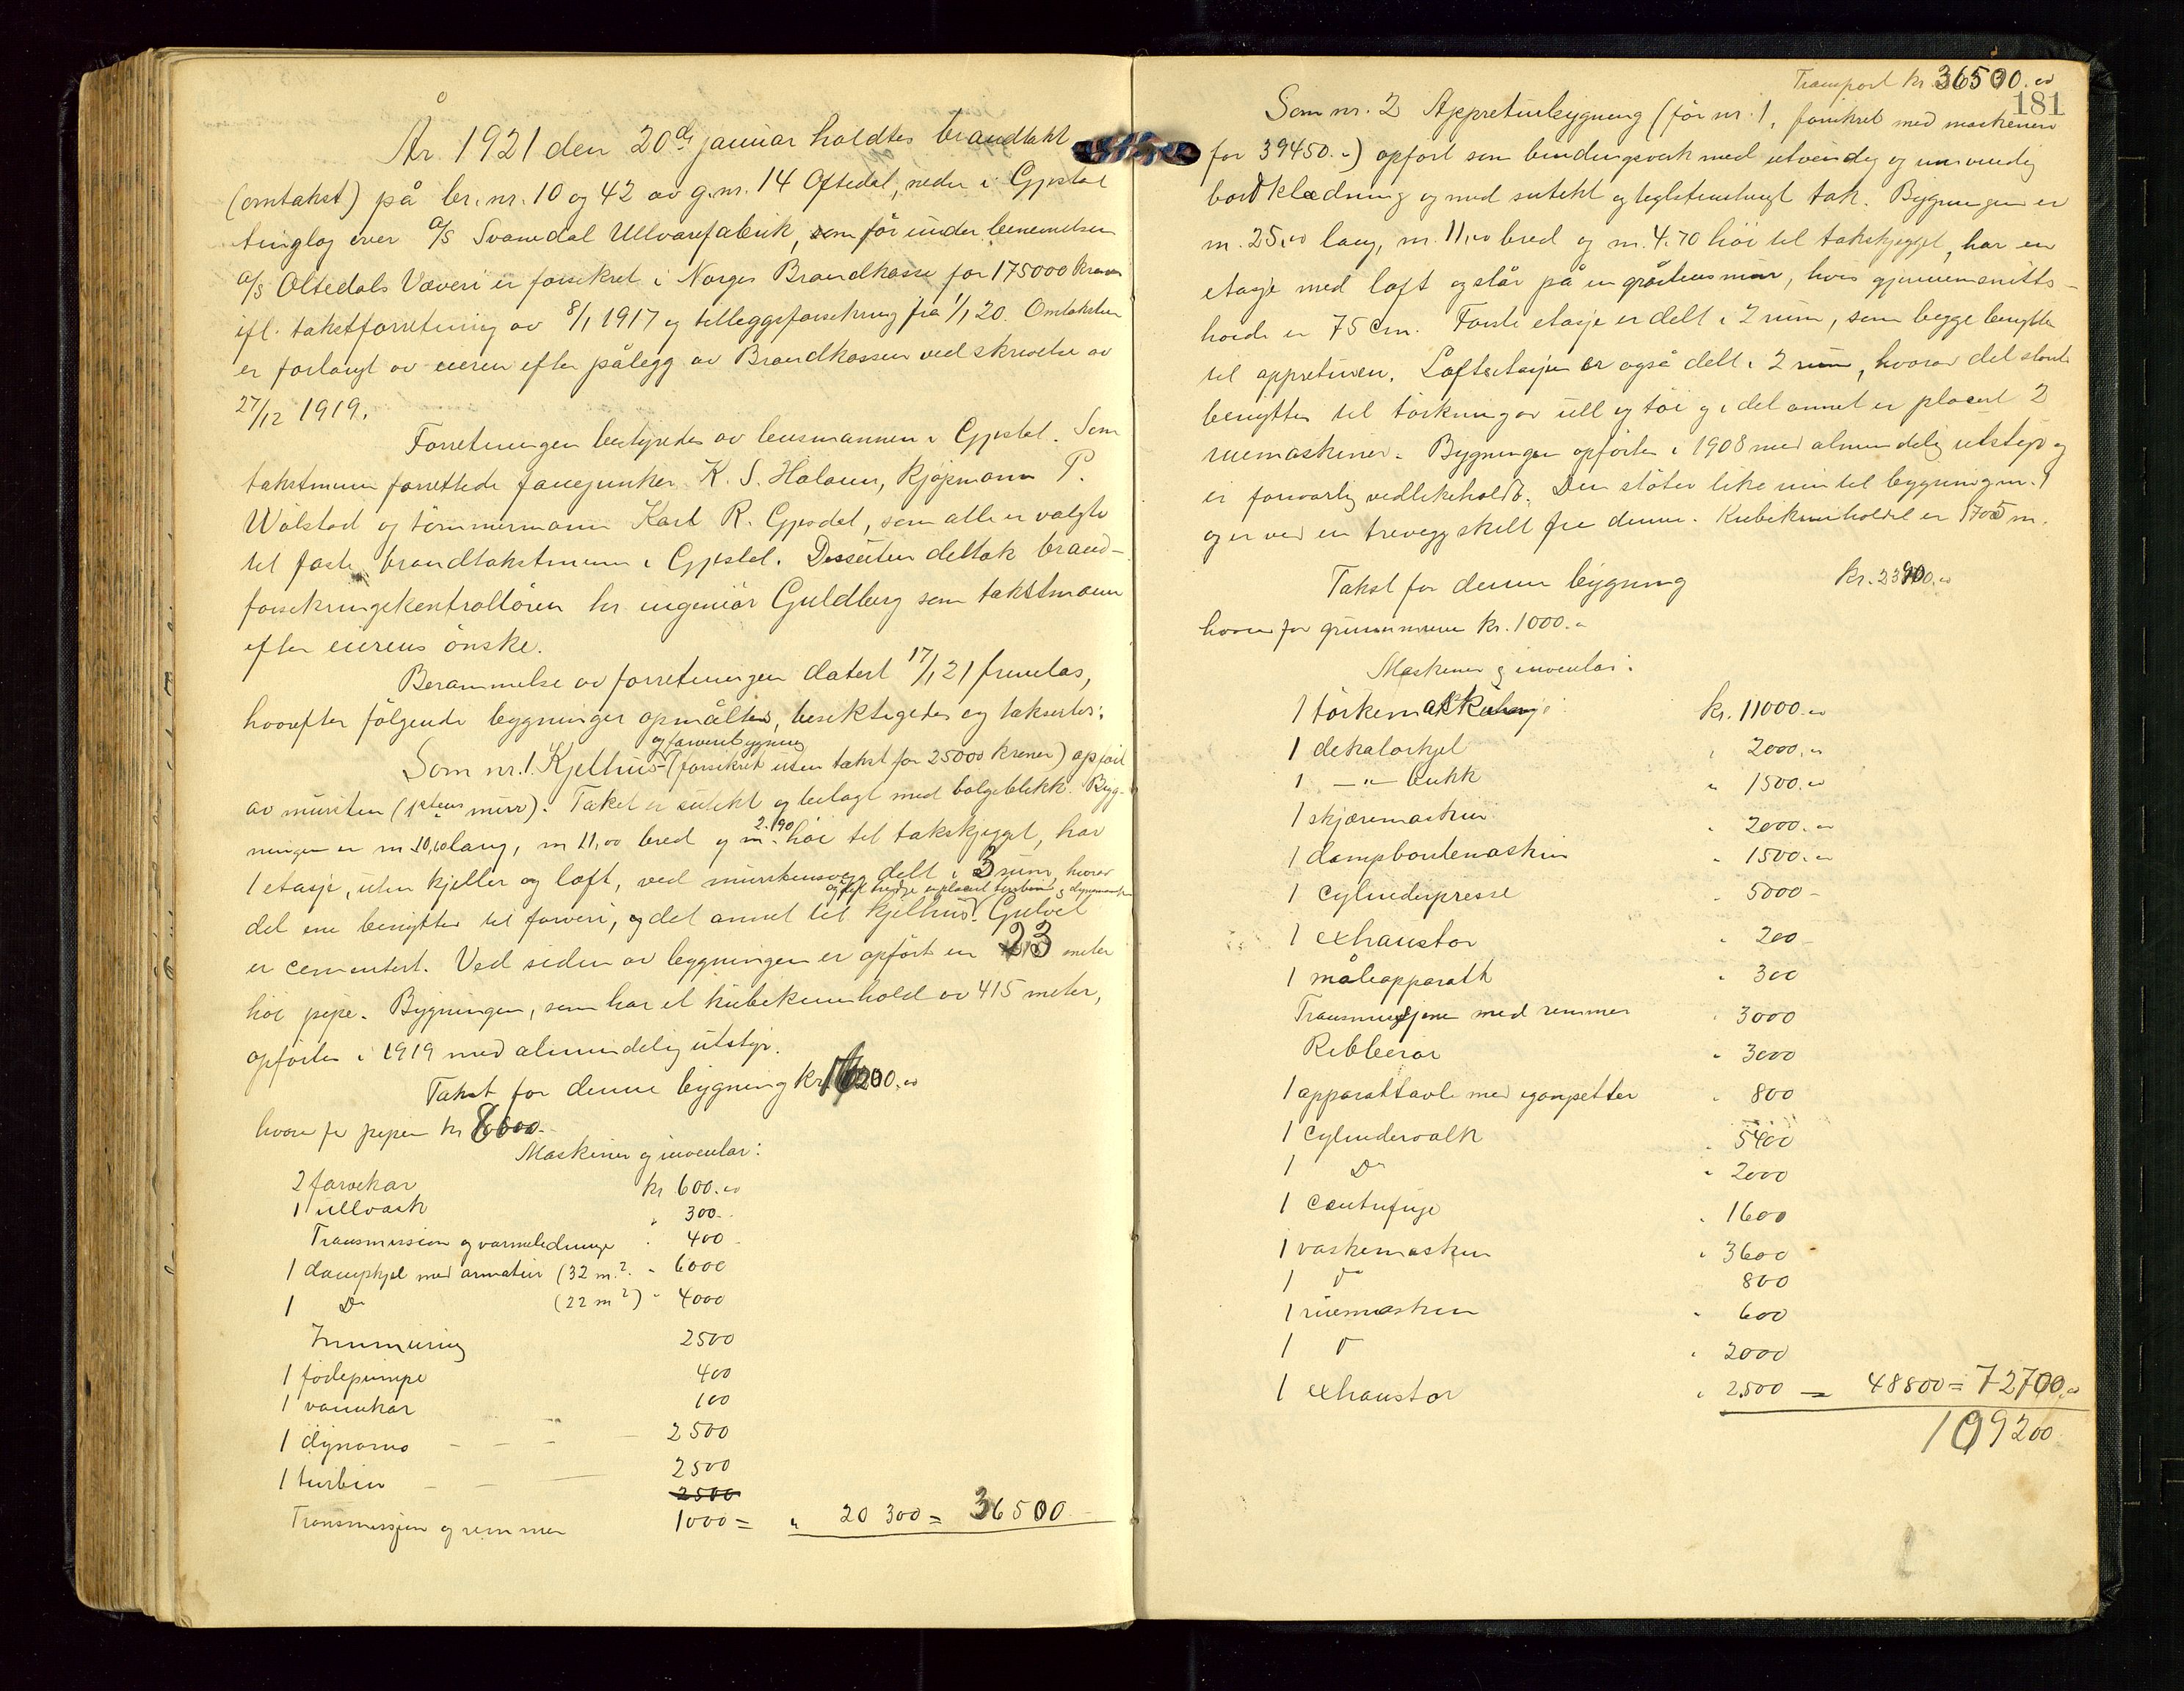 År 1921 den 20de januar holdtes brandtakt
(omtakst) på br. nr. 10 og 42 av g.nr. 14 Oftedal, neder i Gjestal
tinglag over A/S Svanedal Ullvarefabrik, som før under benevnelsen
A/S Oltedals Væveri er forsikret i Norges Brandkasse for 175000 kroner
ifl. takstforretning av 8/1 1917 og tilleggsforsikring fra 1/1 20. Omtaksten
er forlangt av eieren efter pålegg av Brandkassen ved skrivelse av
27/12 1919.
Forretningen bestyredes av lensmannen i Gjestal. Som
takstmenn forrettede fanejunker K. S. Haaland, kjøpmann P.
Wølstad og tømmermann Karl R. Gjesdal, som alle er valgte
til faste brandtakstmenn i Gjestal. Dessuten deltok brand-
forsikringskontrolløren hr. ingeniør Guldberg som takstmann
efter eierens ønske.
Berammelse av forretningen datert 17/1 21 fremlas,
hvorefter følgende bygninger opmåltes, besiktigedes og taksertes:
og farveribygning
Som nr. 1. Kjelhus (forsikret uten takst for 25000 kroner) opført
av mursten (1 stens mur). Taket er sutekt og belagt med bølgeblikk. Byg-
ningen er m 10,60 lang, m 11,00 bred og m. 2.90 høi til takskjegget, har
1 etasje, uten kjeller og loft, ved murstensvegg delt i 3 rum, hvorav
og i det tredje er placert turbin og dynamo
det ene benyttes til farveri, og det annet til kjelhus. Gulvet
er cementert. Ved siden av bygningen er opført en 23 meter
høi pipe. Bygningen, som har et kubikinnhold av 415 meter,
opførtes i 1919 med almindelig utstyr.
Takst for denne bygning kr. 16200.00
hvorav for pipen kr 8000.-
Maskiner og inventar:
2 farvekar kr 600.00
1 ullvask " 300.-
Transmission og varmeledninger " 400
1 dampkjel med armatur (32 m.2. " 6000
1 Do (22 m2) " 4000
Innmuring 2500
1 fødepumpe 400
1 vannkar 100
1 dynamo - - - 2500
1 turbin - - 2500
2500
Transmissjon og remmer 1000 = " 20 300 = 36500.-
Transport kr. 36500.00
181
Som nr. 2 Appreturbygning (før nr. 1, forsikret med maskiner
for 39450.-) opført som bindingsverk med utvendig og innvendig
bordklædning og med sutekt og teglstenstengt tak. Bygningen er
m. 25,00 lang, m. 11,00 bred og m. 4.70 høi til takskjegget, har en
etasje med loft og står på en gråstensmur, hvis gjennemsnitts-
høide er 75 cm. Første etasje er delt i 2 rum, som begge benyttes
til appreturen. Loftsetasjen er også delt i 2 rum, hvorav det største
benyttes til tørkning av ull og tøi og i det annet er placert 2
ruemaskiner. Bygningen opførtes i 1908 med almindelig utstyr og
er forsvarlig vedlikeholdt. Den støter like inn til bygning nr. 1
og er ved en trevegg skilt fra denne. Kubikinnholdet er 1705 m.
Takst for denne bygning kr. 23900.00
hvorav for grunnmuren kr. 1000.-
Maskiner og inventar:
1 tørkemaskin kr. 11000.00
1 dekatørkjel " 2000.00
1 —"— bukk " 1500.00
1 skjæremaskin " 2000.00
1 dampbørstemaskin " 1500.00
1 cylinderpresse " 5000-
1 exhaustor " 200-
1 måleapparath " 300
Transmissjone med remmer " 3000
Ribberør " 3000
1 apparattavle med igangsetter " 800
1 cylindervalk " 5400
1 Do " 2000
1 centrifuge " 1600
1 vaskemaskin " 3600
1 Do 800
1 ruemaskin " 600
1 Do " 2000
1 exhaustor " 2500 = 48800 = 72700.00
109200